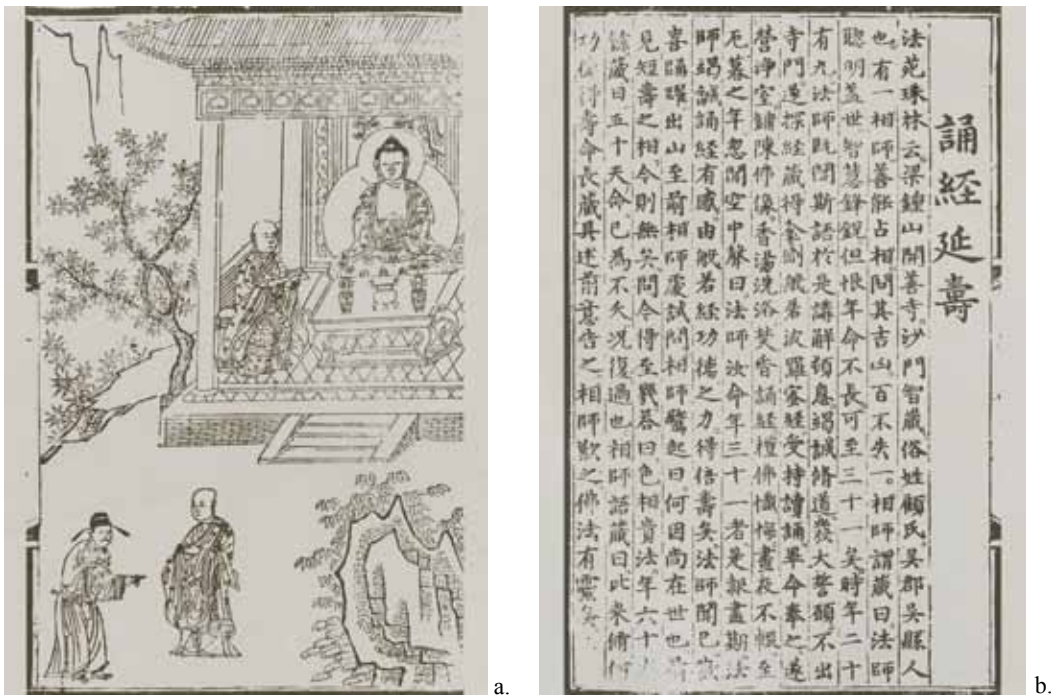 誦經延壽
法苑珠林云梁鍾山開善寺沙門智藏俗姓顧氏吳郡吳縣人
也有一相師善能占相問其吉凶百不失一。相師謂藏曰法師
聰明蓋世智慧鋒銳但恨年命不長可至三十一矣時年二十
有九法師既聞斯語於是講解頓息竭誠脩道發大誓願不出
寺門遂探經藏得金剛般若波羅蜜經受持讀誦畢命奉之遂
營淨室鋪陳佛像香湯洗浴焚香誦經禮佛懺悔晝夜不懈至
厄暮之年忽聞空中聲曰法師汝命年三十一者是報盡期法
師竭誠誦經有感由般若經功德之力得倍壽矣法師聞已歡
喜踊躍出山至前相師處試問相師驚起曰何因尚在世也前
見短壽之相今則無矣問今得至幾荅曰色相貴法年六十
餘藏曰五十天命已為不夭况復過也相師語藏曰比來脩何
功德得壽命長藏具述前意告之相師歎之佛法有靈矣
a.
b.